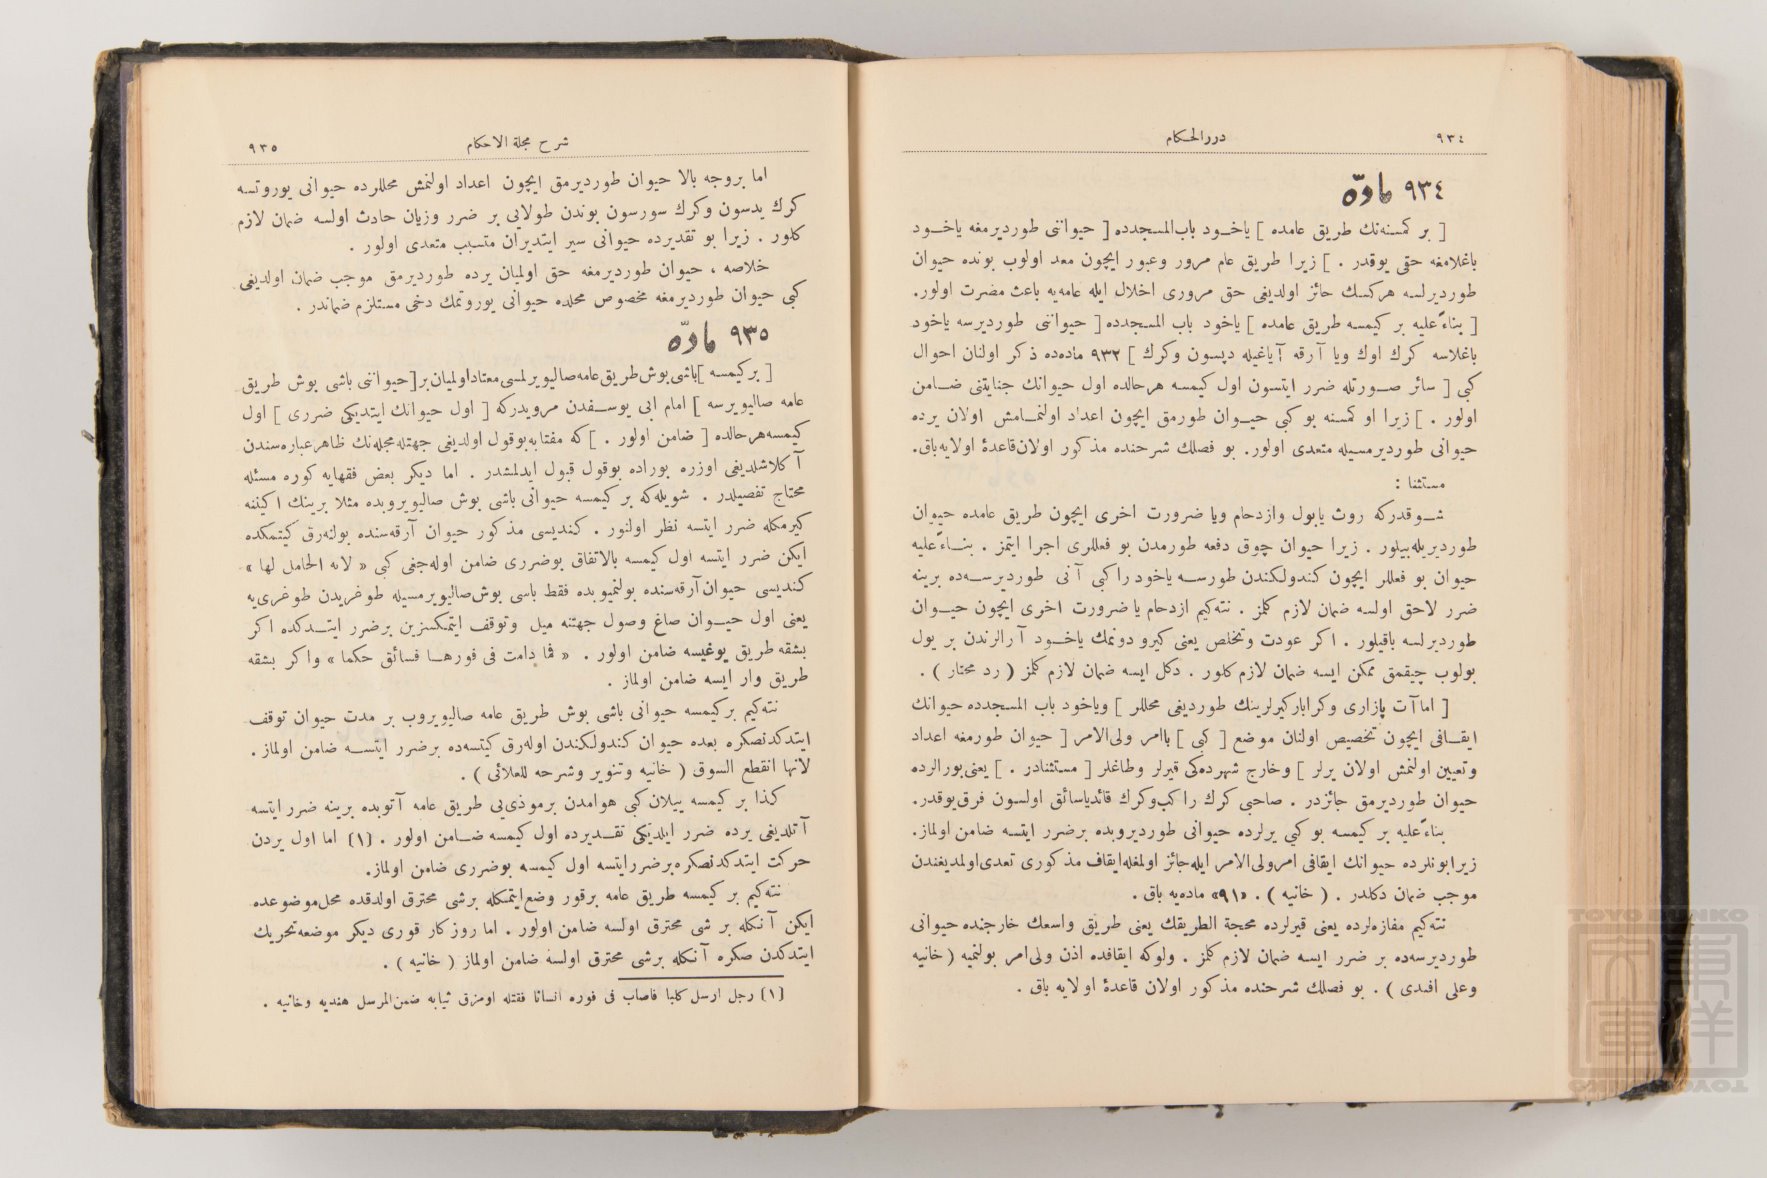 ٩٣٤
دررالحكام
٩٣٤ مادّه
[ بر كمسنه‌نك طريق عامده ] ياخود باب‌المسجدده [ حيواننى طورديرمغه ياخود
باغلامغه حقى يوقدر . ] زيرا طريق عام مرور وعبور ايچون معد اولوب بونده حيوان
طورديرلسه هركسك حائز اولديغى حق مرورى اخلال ايله عامه‌يه باعث مضرت اولور.
[ بناءً عليه بر كيمسه طريق عامده ] ياخود باب المسجدده [ حيواننى طورديرسه ياخود
باغلاسه كرك اوك ويا آرقه آياغيله دپسون وكرك ] ٩٣٢ ماده‌ده ذكر اولنان احوال
كبى [ سائر صورتله ضرر ايتسون اول كيمسه هرحالده اول حيوانك جنايتنى ضامن
اولور . ] زيرا او كمسنه بو كبى حيوان طورمق ايچون اعداد اولنمامش اولان يرده
حيوانى طورديرمسيله متعدى اولور. بو فصلك شرحنده مذكور اولان قاعدهٔ اولايه باق.
مستثنا :
شو قدركه روث يابول وازدحام ويا ضرورت اخرى ايچون طريق عامده حيوان
طورديريله‌بيلور . زيرا حيوان چوق دفعه طورمدن بو فعللرى اجرا ايتمز . بناءً عليه
حيوان بو فعللر ايچون كندولكندن طورسه ياخود راكبى آنى طورديرسه‌ده برينه
ضرر لاحق اولسه ضمان لازم كلمز . نته‌كيم ازدحام يا ضرورت اخرى ايچون حيوان
طورديرلسه باقيلور . اكر عودت وتخلص يعنى كيرو دونمك ياخود آرالرندن بر يول
بولوب چيقمق ممكن ايسه ضمان لازم كلور . دكل ايسه ضمان لازم كلمز ( رد محتار ) .
[ اما آت پازارى وكرا باركيرلرينك طورديغى محللر ] وياخود باب المسجدده حيوانك
ايقافى ايچون تخصيص اولنان موضع [ كبى ] باامر ولى‌الامر [ حيوان طورمغه اعداد
وتعيين اولنمش اولان يرلر ] وخارج شهرده‌كى قيرلر وطاغلر [ مستثنادر . ] يعنى بورالرده
حيوان طورديرمق جائزدر . صاحبى كرك راكب وكرك قائد ياسائق اولسون فرق يوقدر.
بناءً عليه بر كيمسه بو كبى يرلرده حيوانى طورديروبده برضرر ايتسه ضامن اولماز.
زيرا بونلرده حيوانك ايقافى امر ولى‌الامر ايله جائز اولمغله ايقاف مذكورى تعدى اولمديغندن
موجب ضمان دكلدر . ( خانيه ) . «٩١» ماده‌يه باق .
نته‌كيم مفازه‌لرده يعنى قيرلرده محجة الطريقك يعنى طريق واسعك خارجنده حيوانى
طورديرسه‌ده بر ضرر ايسه ضمان لازم كلمز . ولوكه ايقافده اذن ولى‌امر بولنميه ( خانيه
وعلى افندى ) . بو فصلك شرحنده مذكور اولان قاعدهٔ اولايه باق .
شرح مجلة الاحكام
٩٣٥
اما بروجه بالا حيوان طورديرمق ايچون اعداد اولنمش محللرده حيوانى يوروتسه
كرك يدسون وكرك سورسون بوندن طولايى بر ضرر وزيان حادث اولسه ضمان لازم
كلور . زيرا بو تقديرده حيوانى سير ايتديران متسبب متعدى اولور .
خلاصه ، حيوان طورديرمغه حق اولميان يرده طورديرمق موجب ضمان اولديغى
كبى حيوان طورديرمغه مخصوص محلده حيوانى يوروتمك دخى مستلزم ضماندر .
٩٣٥ مادّه
[ بركيمسه ] باشى بوش طريق عامه صاليويرلمسى معتاد اولميان بر [ حيواننى باشى بوش طريق
عامه صاليويرسه ] امام ابى يوسفدن مرويدركه [ اول حيوانك ايتديكى ضررى ] اول
كيمسه هرحالده [ ضامن اولور . ] كه مفتابه بوقول اولديغى جهتله مجله‌نك ظاهر عباره‌سندن
آكلاشلديغى اوزره بوراده بوقول قبول ايدلمشدر . اما ديكر بعض فقهايه كوره مسئله
محتاج تفصيلدر . شويله‌كه بر كيمسه حيوانى باشى بوش صاليويروبده مثلا برينك اكيننه
كيرمكله ضرر ايتسه نظر اولنور . كنديسى مذكور حيوان آرقه‌سنده بولنه‌رق كيتمكده
ايكن ضرر ايتسه اول كيمسه بالاتفاق بوضررى ضامن اوله‌جغى كبى « لانه الحامل لها »
كنديسى حيوان آرقه‌سنده بولنميوبده فقط باشى بوش صاليويرمسيله طوغريدن طوغرى‌يه
يعنى اول حيوان صاغ وصول جهتنه ميل وتوقف ايتمكسزين برضرر ايتدكده اكر
بشقه طريق يوغيسه ضامن اولور . « فما دامت فى فورها فسائق حكما » واكر بشقه
طريق وار ايسه ضامن اولماز .
نته‌كيم بركيمسه حيوانى باشى بوش طريق عامه صاليويروب بر مدت حيوان توقف
ايتدكدنصكره بعده حيوان كندولكندن اوله‌رق كيتسه‌ده برضرر ايتسه ضامن اولماز .
لانها انقطع السوق ( خانيه وتنوير وشرحه للعلائى ) .
كذا بر كيمسه ييلان كبى هوامدن برموذى‌يى طريق عامه آتوبده برينه ضرر ايتسه
آتلديغى يرده ضرر ايلديكى تقديرده اول كيمسه ضامن اولور . (١) اما اول يردن
حركت ايتدكدنصكره برضررايتسه اول كيمسه بوضررى ضامن اولماز.
نته‌كيم بر كيمسه طريق عامه برقور وضع ايتمكله برشى محترق اولدقده محل موضوعده
ايكن آنكله بر شى محترق اولسه ضامن اولور . اما روزكار قورى ديكر موضعه تحريك
ايتدكدن صكره آنكله برشى محترق اولسه ضامن اولماز ( خانيه ) .
(١) رجل ارسل كلبا فاصاب فى فوره انسانا فقتله اومزق ثيابه ضمن المرسل هنديه وخانيه .
TOYO BUNKO